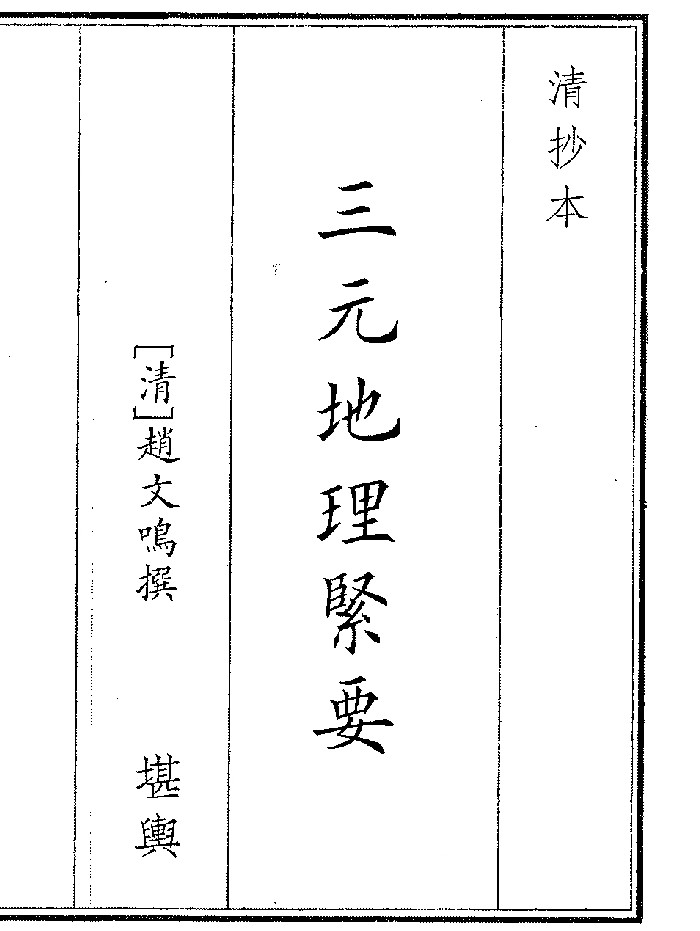 清抄本
三元地理緊要
[清]趙文鳴撰
堪輿